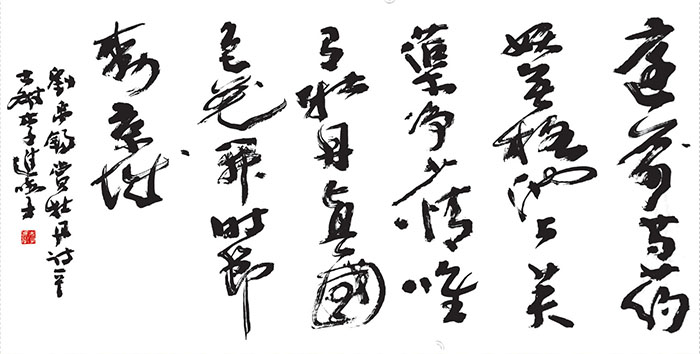 庭前芍药
妖無格池上芙
蕖净少情唯
有牡丹真國
色花開時節
動京城
劉禹錫賞牡丹詩一首